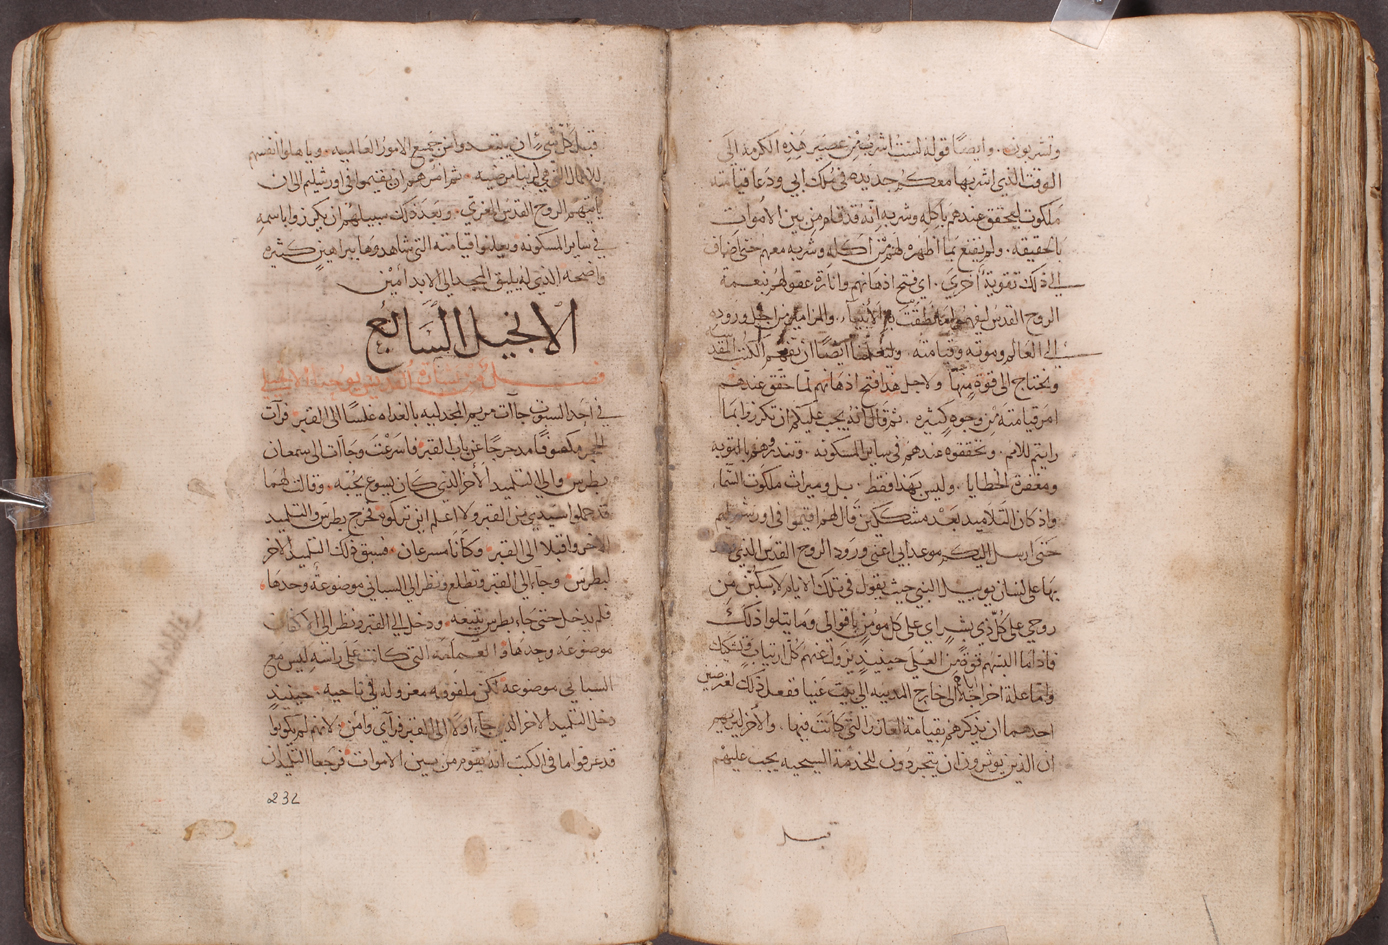 وتشربون. وايضًا قوله لست اشرب من عصير هذه الكرمة الى
الوقت الذي اشربها معكم جديده في ملكوت ابي ودعا قيامته
ملكوت ليحقق عندهم باكله وشربه انه قد قام من بين الاموات
بالحقيقه. ولم يقنع بما اظهره لهم من اكله وشربه معهم حتى اضاف
الى ذلك تقوية اخري. اي فتح اذهانهم وانارة عقولهم بنعمة
الروح القدس ليفهموا ما نطقت به الانبياء، والمزامير من اجل وروده
الى العالم وموته وقيامته. وليعلمنا ايضًا ان تفهم الكتب المقدسه
يحتاج الى قوة منها ولاجل هذا فتح اذهانهم لما حقق عندهم
امر قيامته من وجوه كثيره. ثم قال انه يجب عليكم ان تكرزوا بما
رايتم للامم. وتحققوه عندهم في ساير المسكونه. وتنذروهم بالتوبه
ومغفرة الخطايا. وليس بهذا فقط. بل وميراث ملكوت السما،
واذ كان التلاميد بعد مشككين قال لهم اقيموا في اورشليم
حتى ارسل اليكم موعد ابي اعني ورود الروح القدس الذي
بها على لسان يوييل النبي حيث يقول في تلك الايام لاسكبن من
روحي على كل ذي بشر اي على كل مومن باقوالي وما يتلوا ذلك
فاذا ما البستم قوة من العلى حينيذ يزول عنهم كل ارتياب وتشكك
واما علة اخراجه اياهم الى خارج المدينه الى بيت عنيا ففعل ذلك لغرضين
احدهما ان يذكرهم بقيامة العازر التي كانت فيها. والاخر ليريهم
ان الذين يوثرون ان يتجردون للخدمة المسيحيه يجب عليهم
قبل
قبل كل شيء ان يبتعدوا من جميع الامور العالميه. وياهلوا انفسهم
للاعمال التي هي لربنا مرضيه. ثم امرهم ان يقيموا في اورشليم الى ان
ياتيهم الروح القدس المعزي. وبعد ذلك سبيلهم ان يكرزوا باسمه
في ساير المسكونه ويعلنوا قيامته التي شاهدوها ببراهين كثيره
واضحه الذي له يليق المجد الى الابد امين
الانجيل السابع
فصل من بشارة القديس يوحنا الانجيلي
في احد السبوت جآات مريم المجدليه بالغداه غلسًا الى القبر. فرآت
الحجر مكشوفًا مدحرجًا عن باب القبر فاسرعت وجآات الى سمعان
بطرس والى التلميد الاخر الذي كان يسوع يحبه. وقالت لهما
قد حملوا سيدي من القبر ولا اعلم اين تركوه فخرج بطرس والتلميد
الاخر واقبلا الى القبر. وكانا مسرعان. فسبق ذلك التلميد الاخر
لبطرس. وجاء الى القبر وتطلع ونظر الى السباني موضوعةً وحدها.
فلم يدخل حتى جاء بطرس يتبعه. ودخل الى القبر ونظر الى الاكفان
موضوعه وحدها والعمامه التي كانت على راسه ليس مع
السباني موضوعه لكن ملفوفه معزوله في ناحيه. حينيذٍ
دخل التلميد الاخر الذي جاء اولاً الى القبر فرآى وامن. لانهم لم يكونوا
قد عرفوا ما في الكتب انه يقوم من بين الاموات فرجعا التلميذان
232